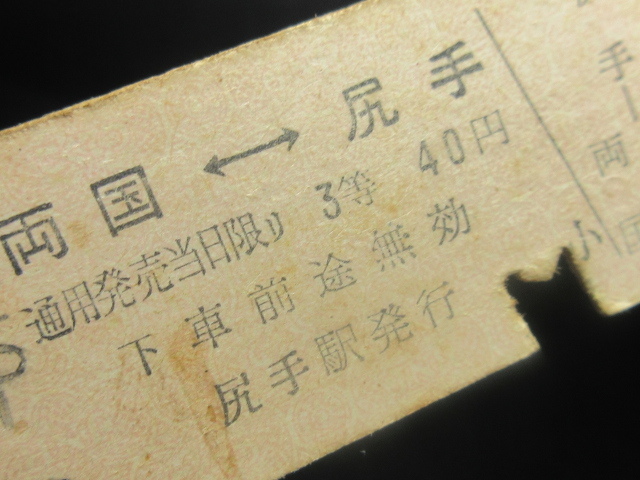 両国 ↔ 尻手
通用発売当日限り 3等 40円
下車前途無効
尻手駅発行
手
両
小